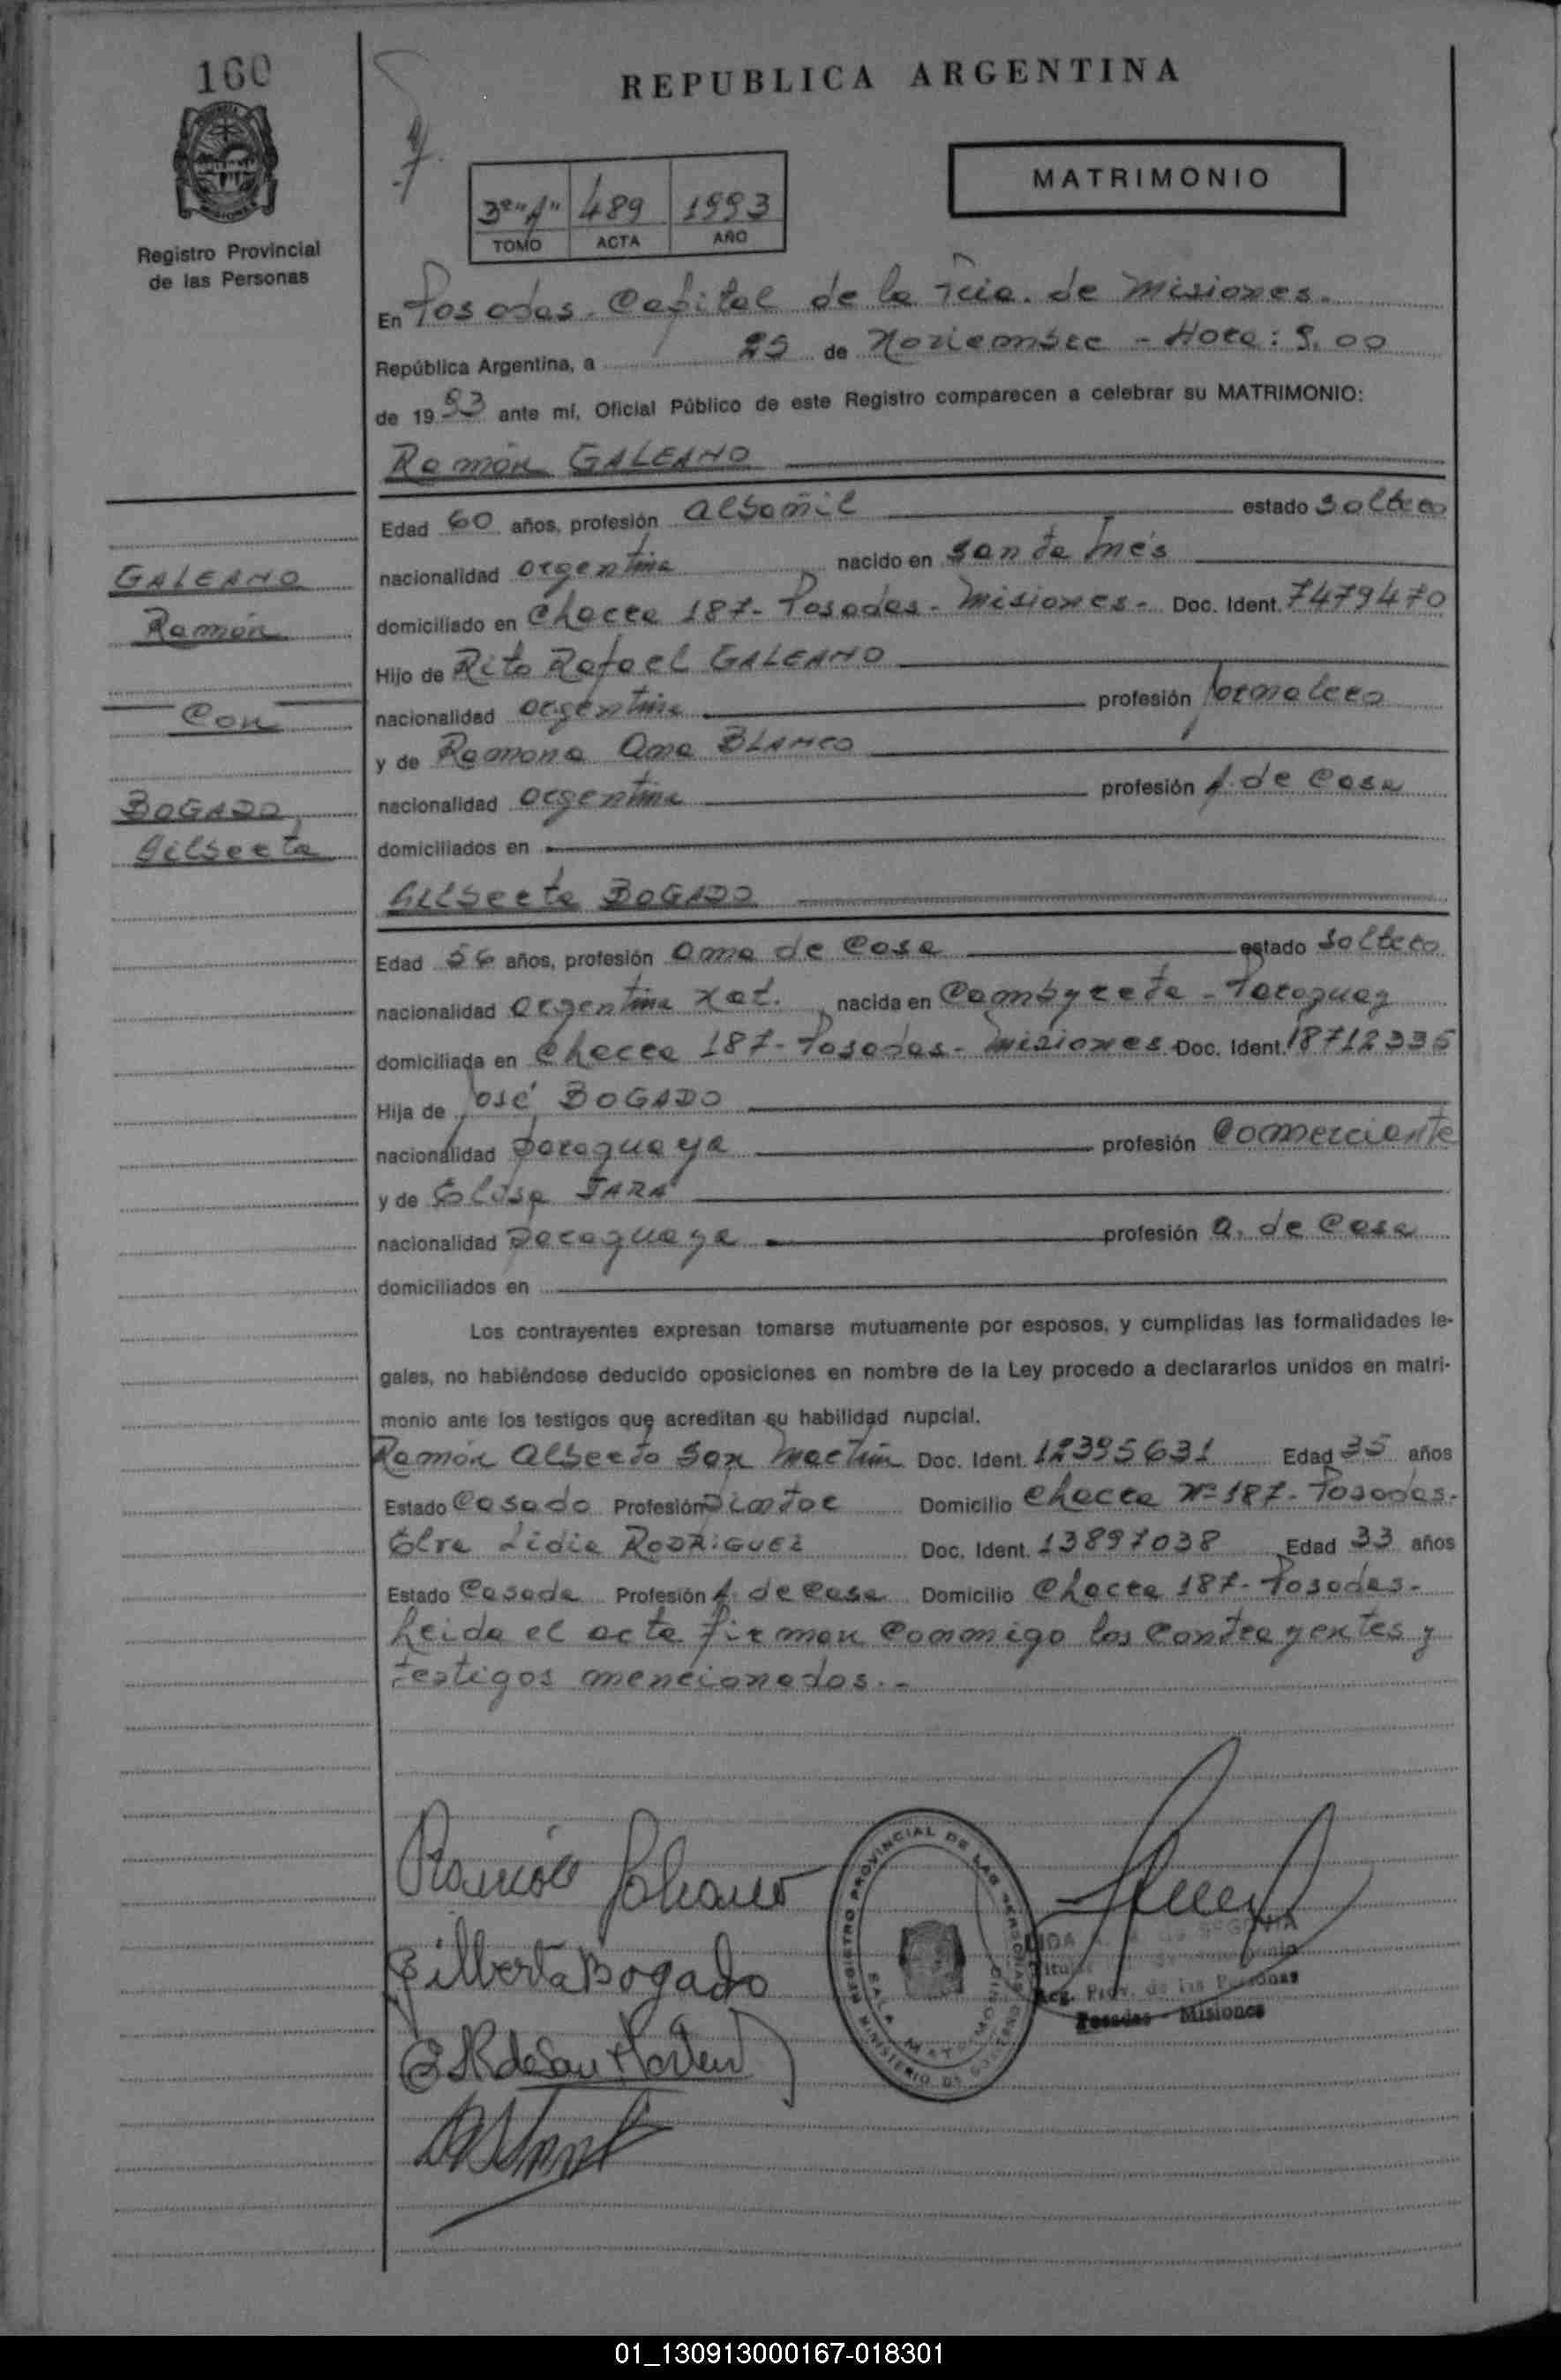 160
REPUBLICA ARGENTINA
MATRIMONIO
3º "A" 489 1993
TOMO ACTA AÑO
Registro Provincial
de las Personas
En Posadas. Capital de la Pcia. de Misiones.
República Argentina, a de Noviembre - Hora: 9.00
de 1993 ante mí, Oficial Público de este Registro comparecen a celebrar su MATRIMONIO:
Ramón GALEANO
Edad 60 años, profesión albañil estado soltero
nacionalidad argentina nacido en Santa Inés
domiciliado en Chacra 187- Posadas- Misiones- Doc. Ident. 7479470
Hijo de Rito Rafael GALEANO
nacionalidad argentina profesión jornalero
y de Ramona Ana BLANCO
nacionalidad argentina profesión A. de Casa
domiciliados en
GALEANO
Ramón
Con
BOGADO,
Gilberta
Gilberta BOGADO
Edad 56 años, profesión ama de Casa estado soltera
nacionalidad argentina nat. nacida en Cambyreta - Paraguay
domiciliada en Chacra 187- Posadas- Misiones Doc. Ident. 18712335
Hija de José BOGADO
nacionalidad paraguaya profesión Comerciante
y de Elisa JARA
nacionalidad paraguaya profesión a. de Casa
domiciliados en
Los contrayentes expresan tomarse mutuamente por esposos, y cumplidas las formalidades le-
gales, no habiéndose deducido oposiciones en nombre de la Ley procedo a declararlos unidos en matri-
monio ante los testigos que acreditan su habilidad nupcial.
Ramón Alberto San Martín Doc. Ident. 12395631 Edad 35 años
Estado Casado Profesión Pintor Domicilio Chacra Nº 187- Posadas-
Elva Lidia RODRIGUEZ Doc. Ident. 13897038 Edad 33 años
Estado Casada Profesión A. de Casa Domicilio Chacra 187- Posadas-
Leida el acta firman conmigo los contrayentes y
testigos mencionados.-
Ramón Galeano
Gilberta Bogado
E R de San Martin
REGISTRO PROVINCIAL DE LAS PERSONAS
SALA MATRIMONIO
MINISTERIO DE GOBIERNO
Reg. Prov. de las Personas
Posadas - Misiones
01_130913000167-018301